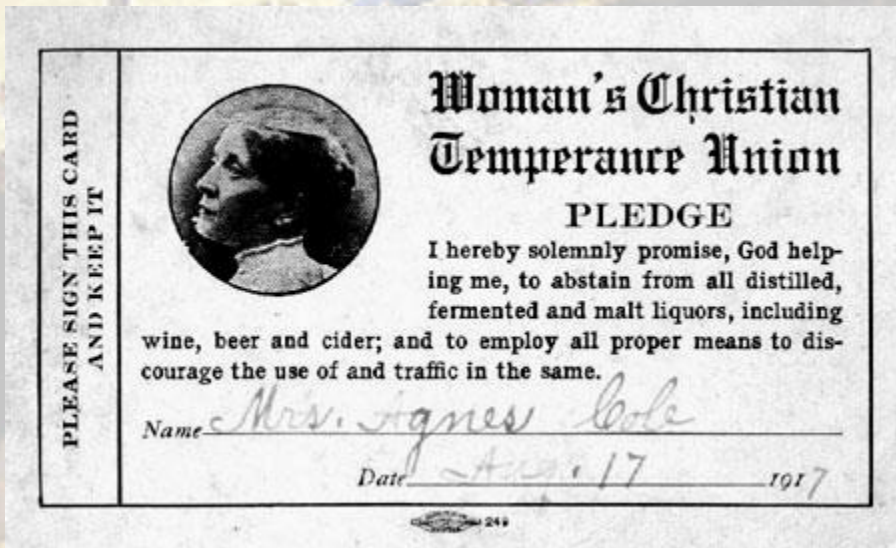 PLEASE SIGN THIS CARD
AND KEEP IT
Woman's Christian
Temperance Union
PLEDGE
I hereby solemnly promise, God help-
ing me, to abstain from all distilled,
fermented and malt liquors, including
wine, beer and cider; and to employ all proper means to dis-
courage the use of and traffic in the same.
Name Mrs. Agnes Cole
Date Aug. 17 1917
249